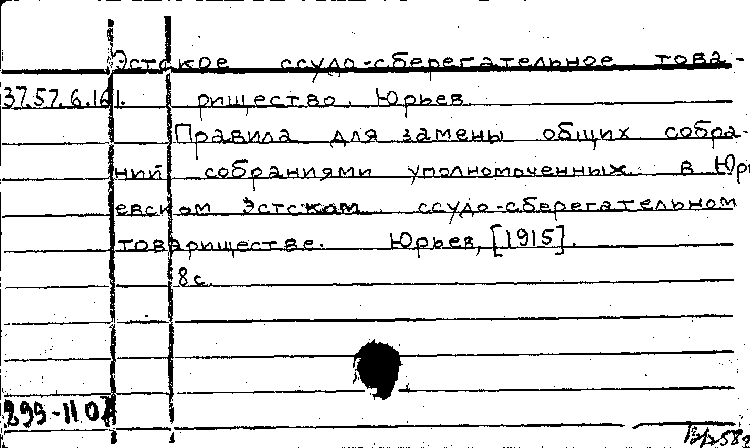 Эстское ссудо-сберегательное това-
37.57.6.161. рищество. Юрьев.
Правила для замены общих собра-
ний собраниями уполномоченных в Юрь
евском Эстском ссудо-сберегательном
товариществе. Юрьев, [1915].
8 с.